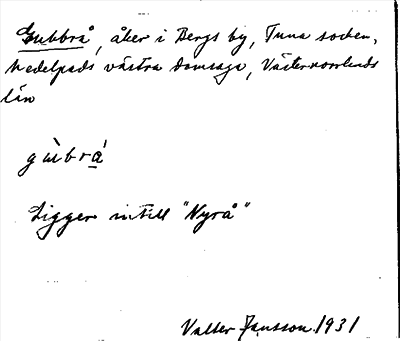 Gubbrå, åker i Bergs by, Tuna socken,
Medelpads västra domsaga, Västernorrlands
län
gùbrá
Ligger intill "Nyrå"
Valter Jansson 1931